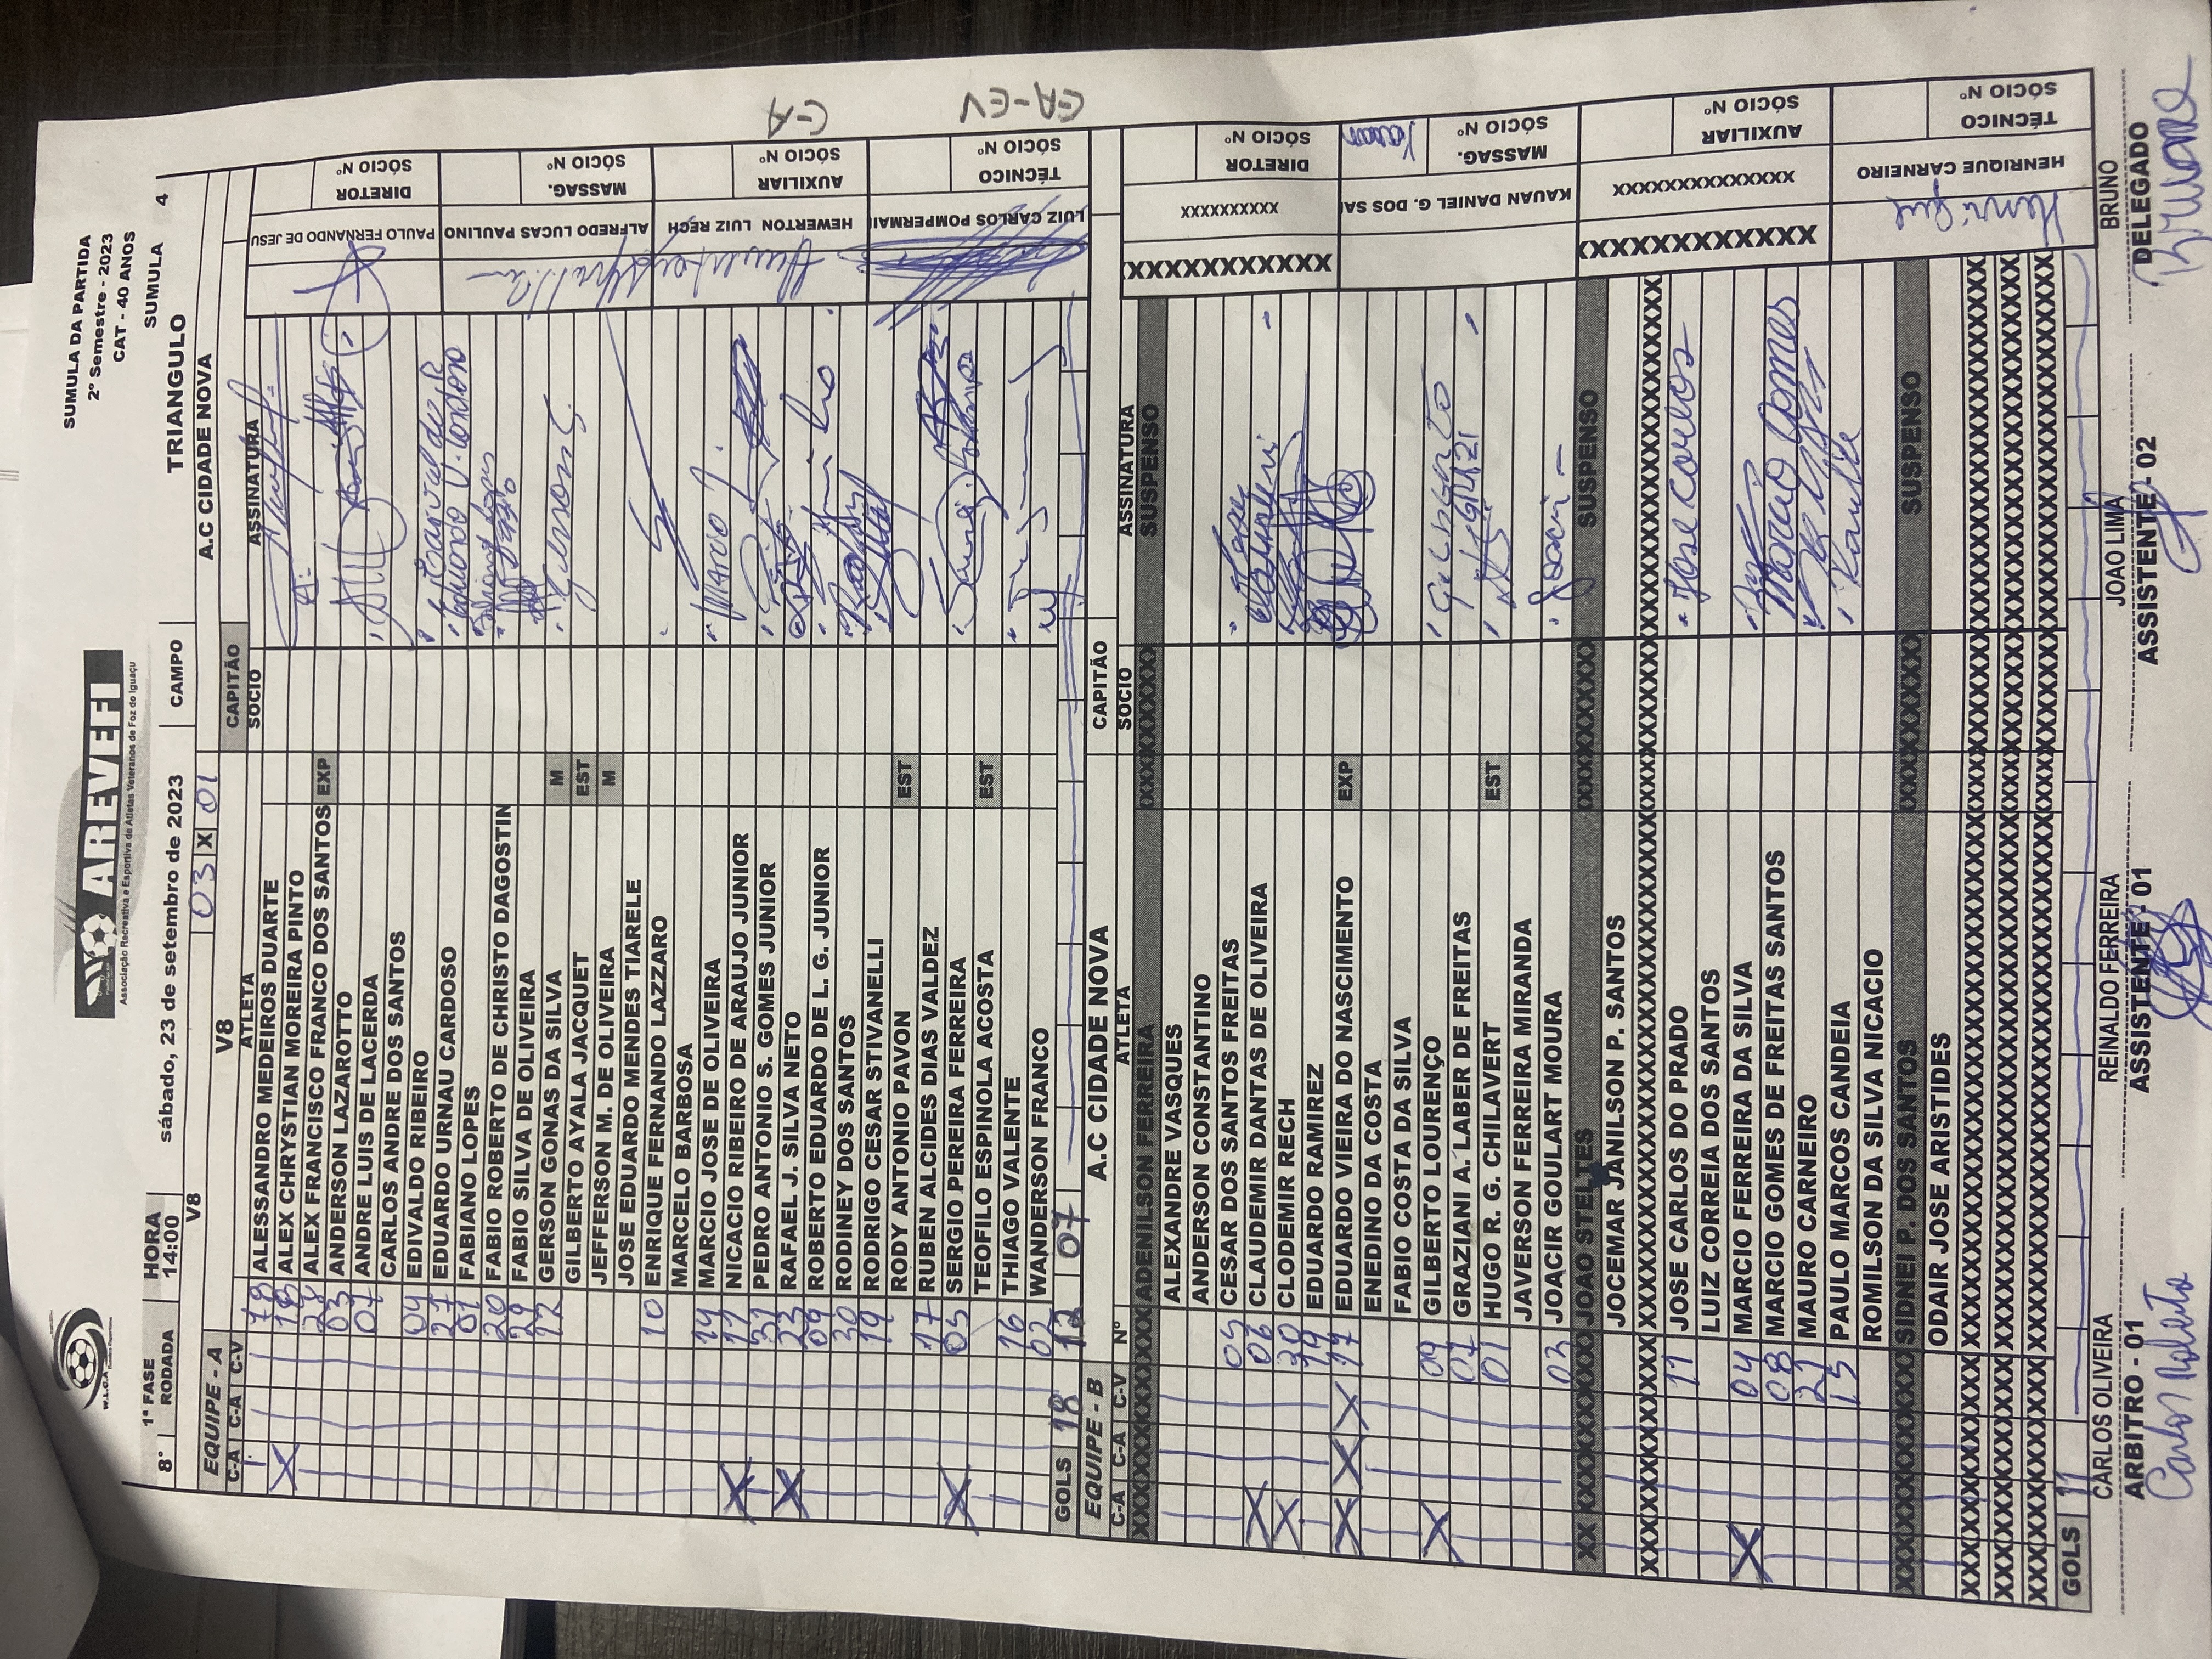 SUMULA DA PARTIDA
2º Semestre - 2023
CAT - 40 ANOS
AREVEFI
Associação Recreativa e Esportiva de Atletas Veteranos de Foz do Iguaçu
1ª FASE HORA SUMULA 4
8° RODADA 14:00 sábado, 23 de setembro de 2023 CAMPO TRIANGULO
V8 03 X 01 A.C CIDADE NOVA
EQUIPE - A V8 CAPITÃO
C-A C-A C-V ATLETA SOCIO ASSINATURA
79 ALESSANDRO MEDEIROS DUARTE
X 18 ALEX CHRYSTIAN MOREIRA PINTO
ALEX FRANCISCO FRANCO DOS SANTOS EXP
03 ANDERSON LAZAROTTO
07 ANDRE LUIS DE LACERDA
CARLOS ANDRE DOS SANTOS
09 EDIVALDO RIBEIRO
27 EDUARDO URNAU CARDOSO
01 FABIANO LOPES
20 FABIO ROBERTO DE CHRISTO DAGOSTIN
29 FABIO SILVA DE OLIVEIRA
12 GERSON GONAS DA SILVA M
GILBERTO AYALA JACQUET EST
JEFFERSON M. DE OLIVEIRA M
JOSE EDUARDO MENDES TIARELE
10 ENRIQUE FERNANDO LAZZARO
MARCELO BARBOSA
14 MARCIO JOSE DE OLIVEIRA
X 11 NICACIO RIBEIRO DE ARAUJO JUNIOR
PEDRO ANTONIO S. GOMES JUNIOR
X 23 RAFAEL J. SILVA NETO
09 ROBERTO EDUARDO DE L. G. JUNIOR
30 RODINEY DOS SANTOS
19 RODRIGO CESAR STIVANELLI
RODY ANTONIO PAVON EST
17 RUBÉN ALCIDES DIAS VALDEZ
X 05 SERGIO PEREIRA FERREIRA
TEOFILO ESPINOLA ACOSTA EST
16 THIAGO VALENTE
02 WANDERSON FRANCO
GOLS 18 07
PAULO FERNANDO DE JESU DIRETOR SÓCIO Nº
ALFREDO LUCAS PAULINO MASSAG. SÓCIO Nº
HEWERTON LUIZ RECH AUXILIAR SÓCIO Nº
C-A
LUIZ CARLOS POMPERMAI TÉCNICO SÓCIO Nº
CA-CV
EQUIPE - B A.C CIDADE NOVA CAPITÃO
C-A C-A C-V Nº ATLETA SOCIO ASSINATURA
ADENILSON FERREIRA SUSPENSO
ALEXANDRE VASQUES
ANDERSON CONSTANTINO
05 CESAR DOS SANTOS FREITAS
X 06 CLAUDEMIR DANTAS DE OLIVEIRA
X 30 CLODEMIR RECH
EDUARDO RAMIREZ
X X X 17 EDUARDO VIEIRA DO NASCIMENTO EXP
ENEDINO DA COSTA
FABIO COSTA DA SILVA
X 09 GILBERTO LOURENÇO
07 GRAZIANI A. LABER DE FREITAS
01 HUGO R. G. CHILAVERT EST
JAVERSON FERREIRA MIRANDA
02 JOACIR GOULART MOURA
JOAO STELTES SUSPENSO
JOCEMAR JANILSON P. SANTOS
11 JOSE CARLOS DO PRADO Jose Carlos
LUIZ CORREIA DOS SANTOS
X 04 MARCIO FERREIRA DA SILVA
08 MARCIO GOMES DE FREITAS SANTOS Marcio Gomes
21 MAURO CARNEIRO
15 PAULO MARCOS CANDEIA
ROMILSON DA SILVA NICACIO
SIDNEI P. DOS SANTOS SUSPENSO
ODAIR JOSE ARISTIDES
GOLS 11
XXXXXXXXXX DIRETOR SÓCIO Nº
KAUAN DANIEL G. DOS SAI MASSAG. SÓCIO Nº
XXXXXXXXXXXXXX AUXILIAR SÓCIO Nº
HENRIQUE CARNEIRO TÉCNICO SÓCIO Nº
CARLOS OLIVEIRA REINALDO FERREIRA JOAO LIMA BRUNO
ARBITRO - 01 ASSISTENTE - 01 ASSISTENTE - 02 DELEGADO
Carlos Bruno